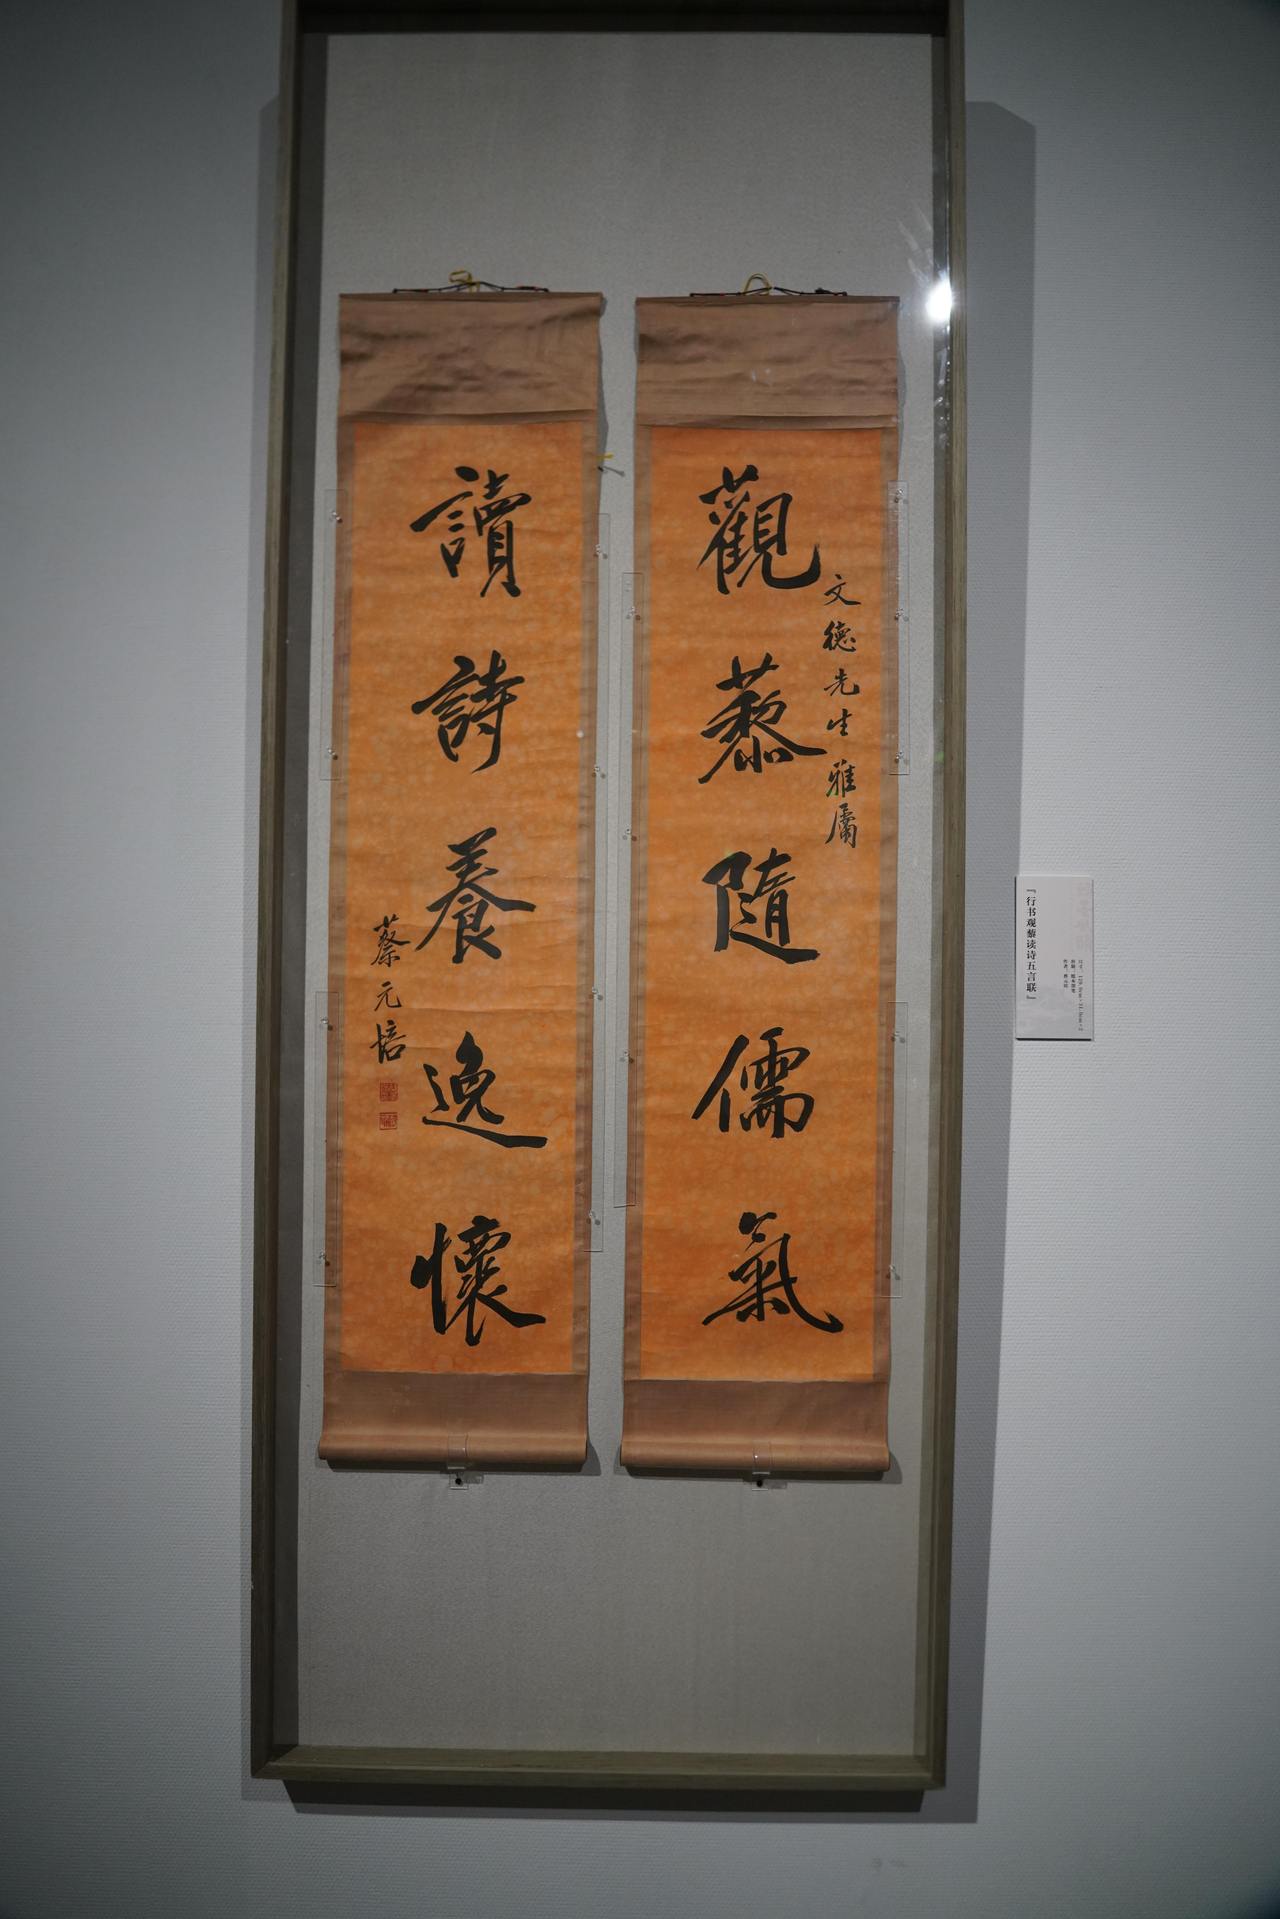 觀藜隨儒氣
文德先生雅屬
讀詩養逸懷
蔡元培
『行书观藜读诗五言联』